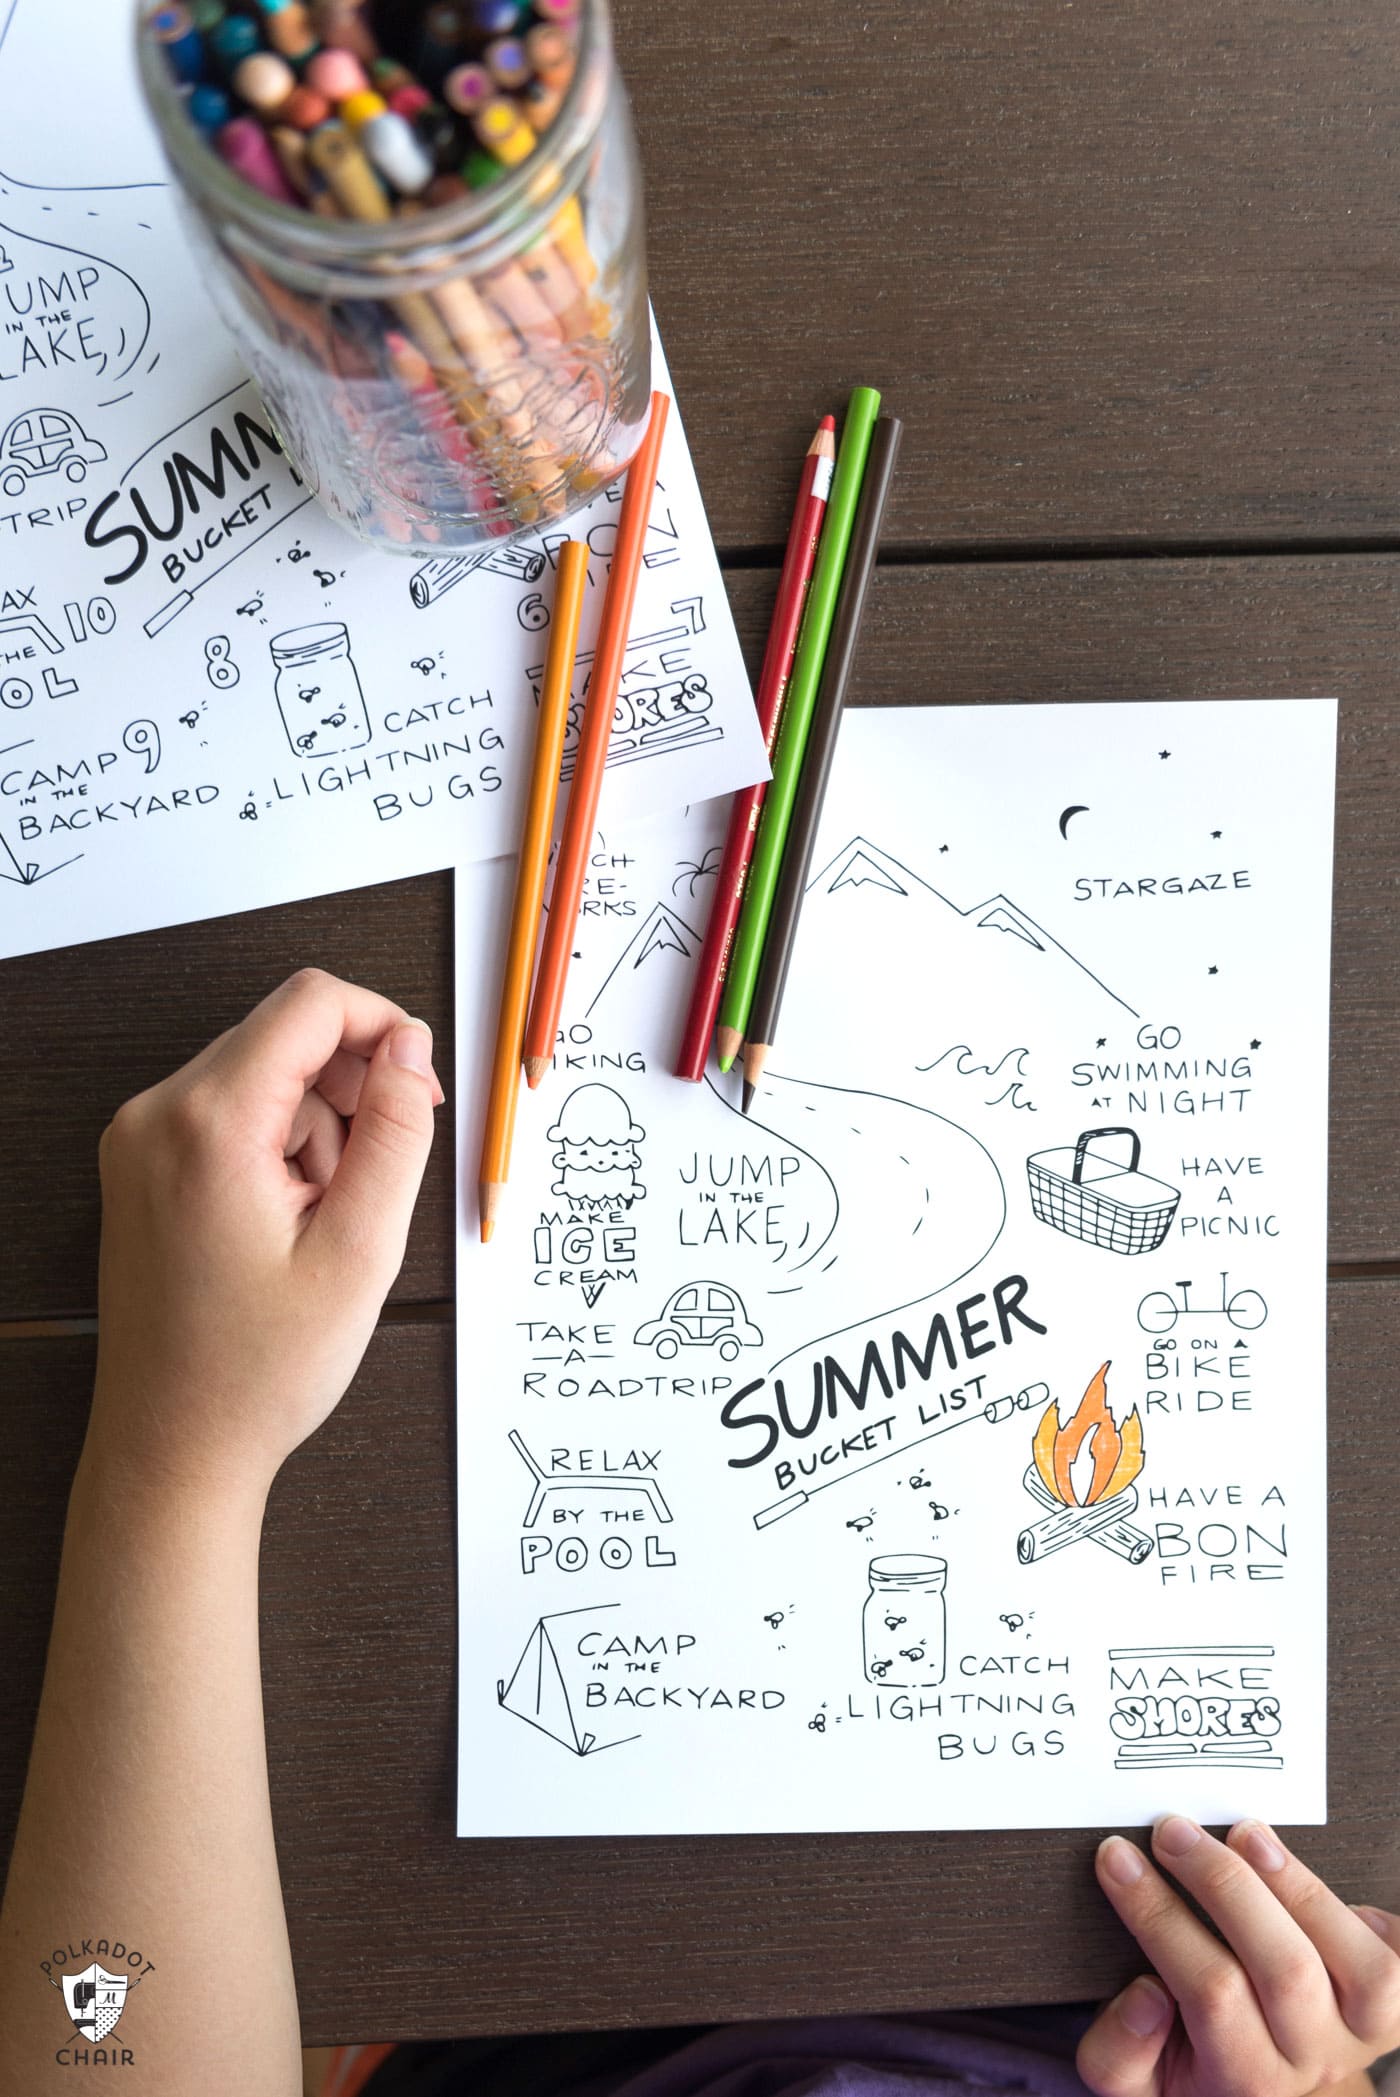 UMP
IN THE
AKE,
TRIP
SUMM
BUCKET
BON
AX
10
THE
OL
6
7
8
KE
ORES
CATCH
LIGHTNING
BUGS
CAMP 9
IN THE
BACKYARD
CH
RE-
RKS
STARGAZE
GO
IKING
GO
SWIMMING
AT NIGHT
MAKE
ICE
CREAM
JUMP
IN THE
LAKE,
HAVE
A
PICNIC
TAKE
—A—
ROADTRIP
SUMMER
BUCKET LIST
GO ON A
BIKE
RIDE
RELAX
BY THE
POOL
HAVE A
BON
FIRE
CAMP
IN THE
BACKYARD
CATCH
LIGHTNING
BUGS
MAKE
SMORES
POLKADOT
M
CHAIR